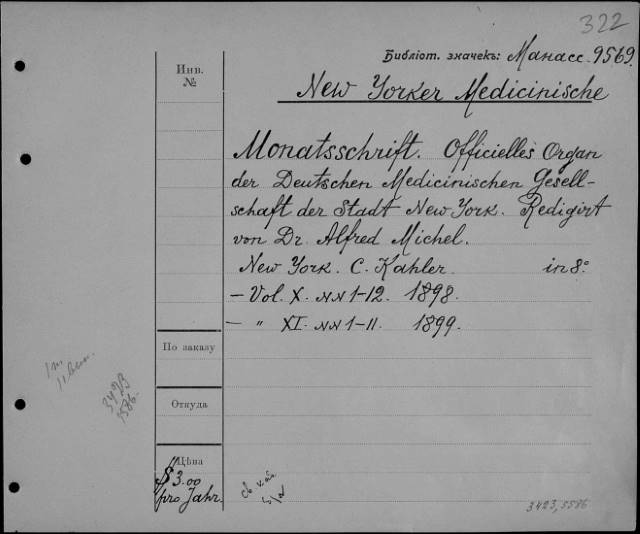 322
Библіот. значекъ: Манасс. 9569.
Инв.
№
New Yorker Medicinische
Monatsschrift. Officielles Organ
der Deutschen Medicinischen Gesell-
schaft der Stadt New York. Redigirt
von Dr. Alfred Michel.
New York. C. Kahler. in 8°
— Vol. X. NN 1-12. 1898.
— " XI. NN 1-11. 1899.
По заказу
Откуда
Цѣна
$3.00
pro Jahr.
3423, 5586